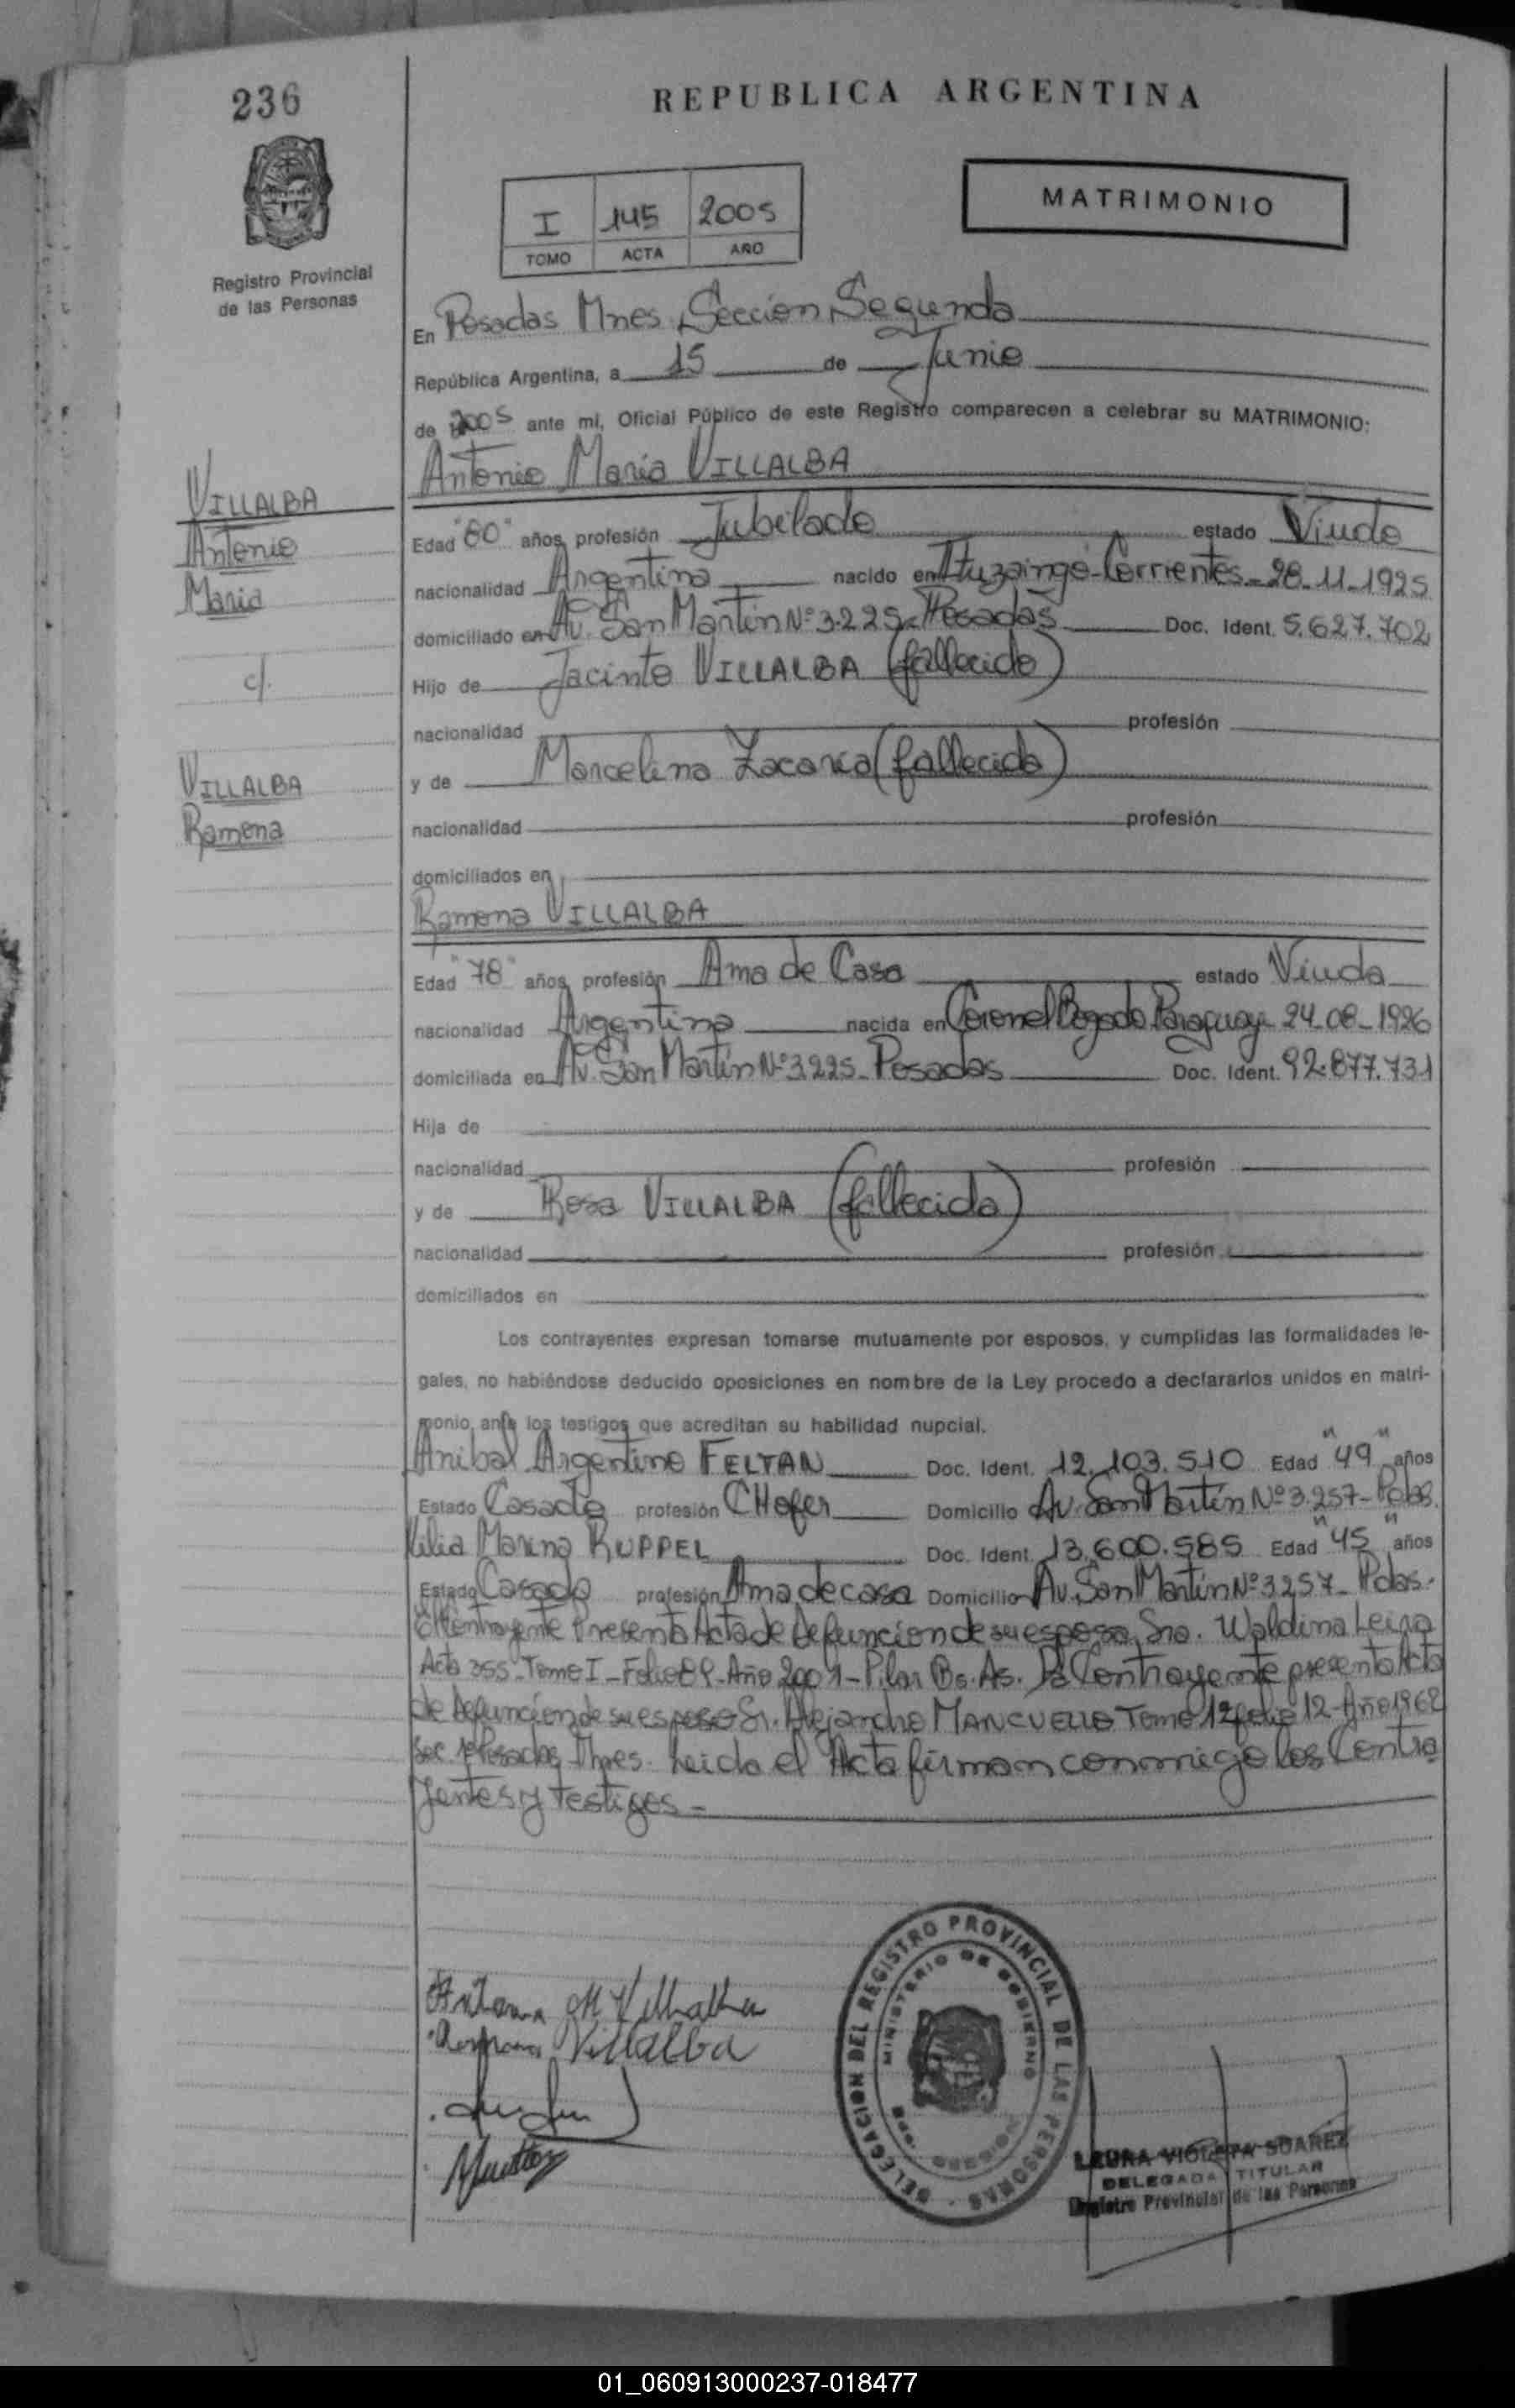 236
REPUBLICA ARGENTINA
I 145 2005
TOMO ACTA AÑO
MATRIMONIO
Registro Provincial
de las Personas
En Posadas Mnes Sección Segunda
República Argentina, a 15 de Junio
de 2005 ante mí, Oficial Público de este Registro comparecen a celebrar su MATRIMONIO:
Antonio Maria VILLALBA
VILLALBA
Antonio
Maria
c/.
VILLALBA
Ramona
Edad "80" años, profesión Jubilado estado Viudo
nacionalidad Argentina nacido en Ituzaingó-Corrientes-28-11-1925
domiciliado en Av. San Martín Nº 3.225-Posadas Doc. Ident. 5.627.702
Hijo de Jacinto VILLALBA (fallecido)
nacionalidad profesión
y de Marcelina Zacaria (fallecida)
nacionalidad profesión
domiciliados en
Ramona VILLALBA
Edad "78" años, profesión Ama de Casa estado Viuda
nacionalidad Argentina nacida en Coronel Bogado Paraguay 24-08-1926
domiciliada en Av. San Martín Nº 3225-Posadas Doc. Ident. 92.877.731
Hija de
nacionalidad profesión
y de Rosa VILLALBA (fallecida)
nacionalidad profesión
domiciliados en
Los contrayentes expresan tomarse mutuamente por esposos, y cumplidas las formalidades le-
gales, no habiéndose deducido oposiciones en nombre de la Ley procedo a declararlos unidos en matri-
monio, ante los testigos que acreditan su habilidad nupcial.
Anibal Argentino FELTAN Doc. Ident. 12.103.510 Edad "49" años
Estado Casado profesión CHofer Domicilio Av. San Martín Nº 3.257-Pdas.
Lilia Marina RUPPEL Doc. Ident. 13.600.585 Edad "45" años
Estado Casada profesión Ama de casa Domicilio Av. San Martín Nº 3257-Pdas.
El Contrayente Presenta Acta de Defunción de su esposa Sra. Waldina Leiva
Acta 355-Tomo I-Folio 89-Año 2001-Pilar Bs. As. La Contrayente presenta Acta
de Defunción de su esposo Sr. Alejandro MANCUELLO Tomo 12 folio 12-Año 1962
Sec. 1º Posadas Mnes. Leida el Acta firman conmigo los Contra
yentes y testigos-
Antonio M Villalba
Ramona Villalba
DELEGACION DEL REGISTRO PROVINCIAL DE LAS PERSONAS
MINISTERIO DE GOBIERNO
LAURA VIOLETA SUAREZ
DELEGADA TITULAR
Registro Provincial de las Personas
01_060913000237-018477